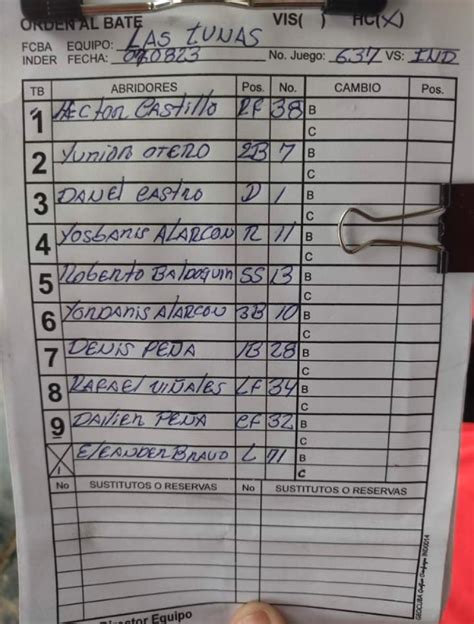 ORDEN AL BATE VIS( ) HC(X)
FCBA EQUIPO: LAS TUNAS
INDER FECHA: 090823 No. Juego: 637 VS: IND
TB ABRIDORES Pos. No. CAMBIO Pos.
1 HECTOR CASTILLO RF 38 B
C
2 YUNIOR OTERO 2B 7 B
C
3 DANEL CASTRO D 1 B
C
4 YOSBANIS ALARCON R 11 B
C
5 ROBERTO BALDOQUIN SS 13 B
C
6 YORDANIS ALARCON 3B 10 B
C
7 DENIS PEÑA 1B 28 B
C
8 RAFAEL VIÑALES LF 34 B
C
9 DAILIER PEÑA CF 32 B
C
ELEANDER BRAVO L 71 B
C
No SUSTITUTOS O RESERVAS No SUSTITUTOS O RESERVAS
Director Equipo